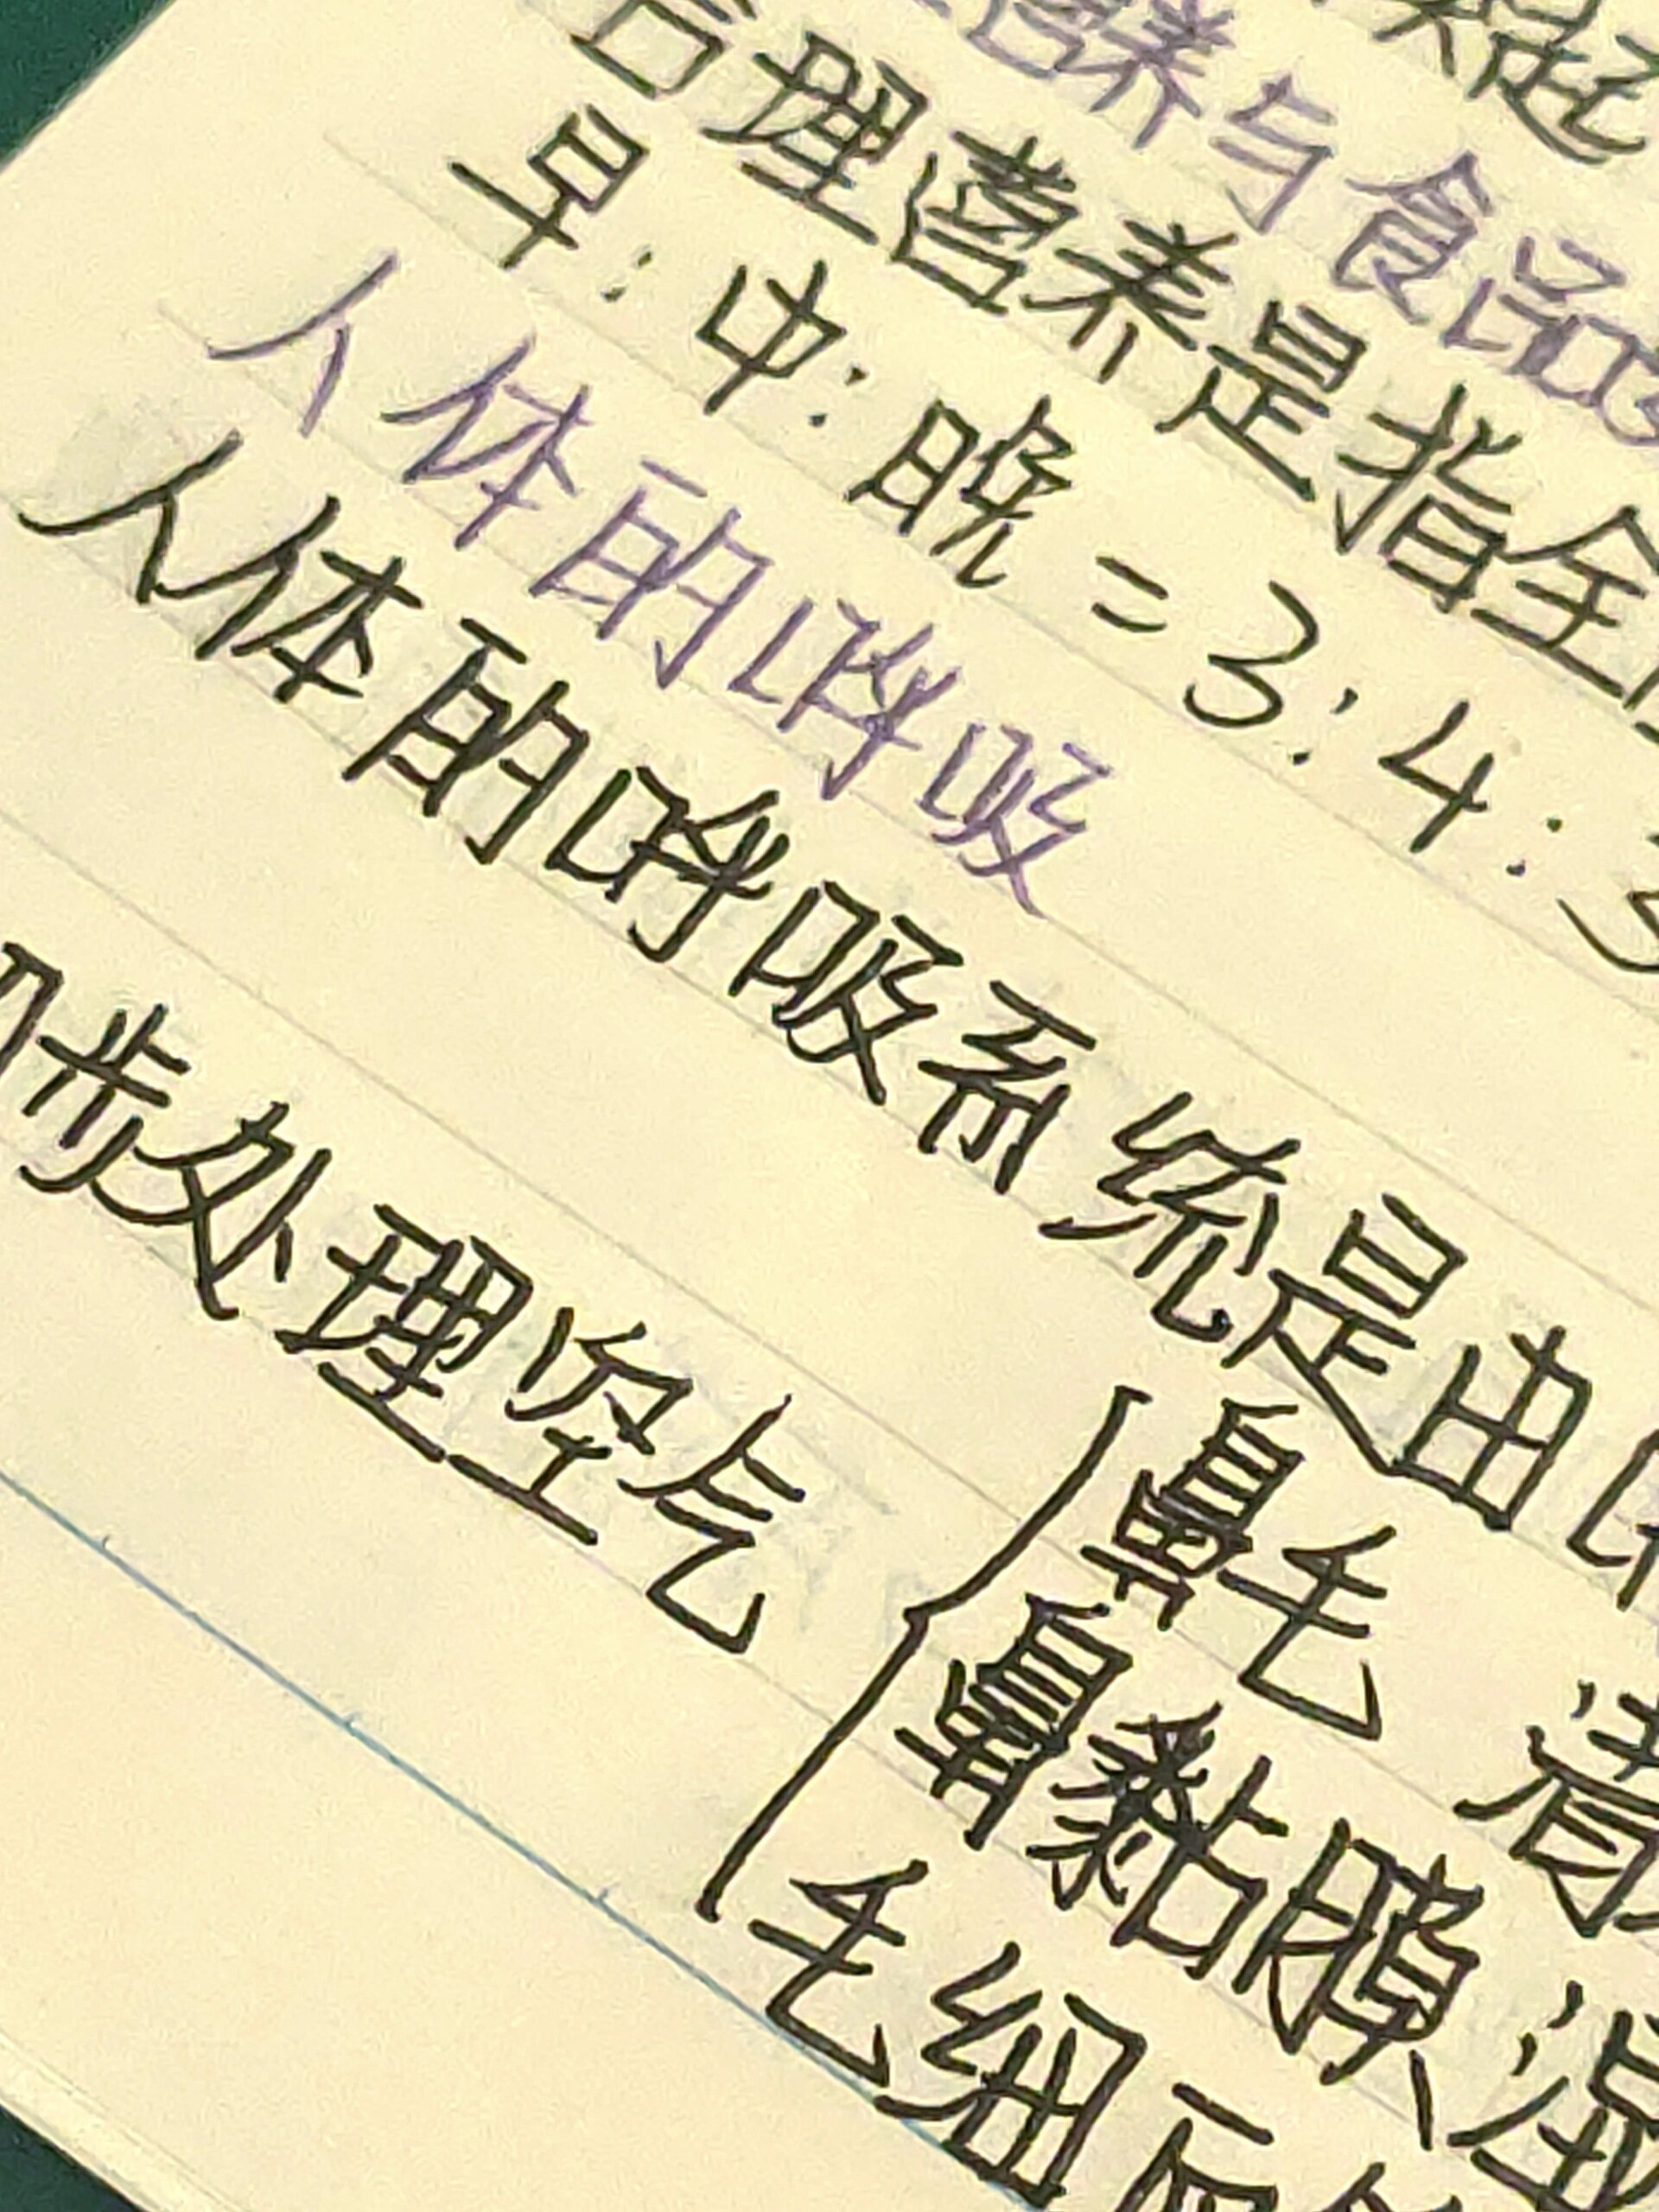 起
营养与食品
合理营养是指全
早:中:晚=3:4:3
人体的呼吸
人体的呼吸系统是由
初步处理空气
鼻毛 清
鼻黏膜 湿
毛细